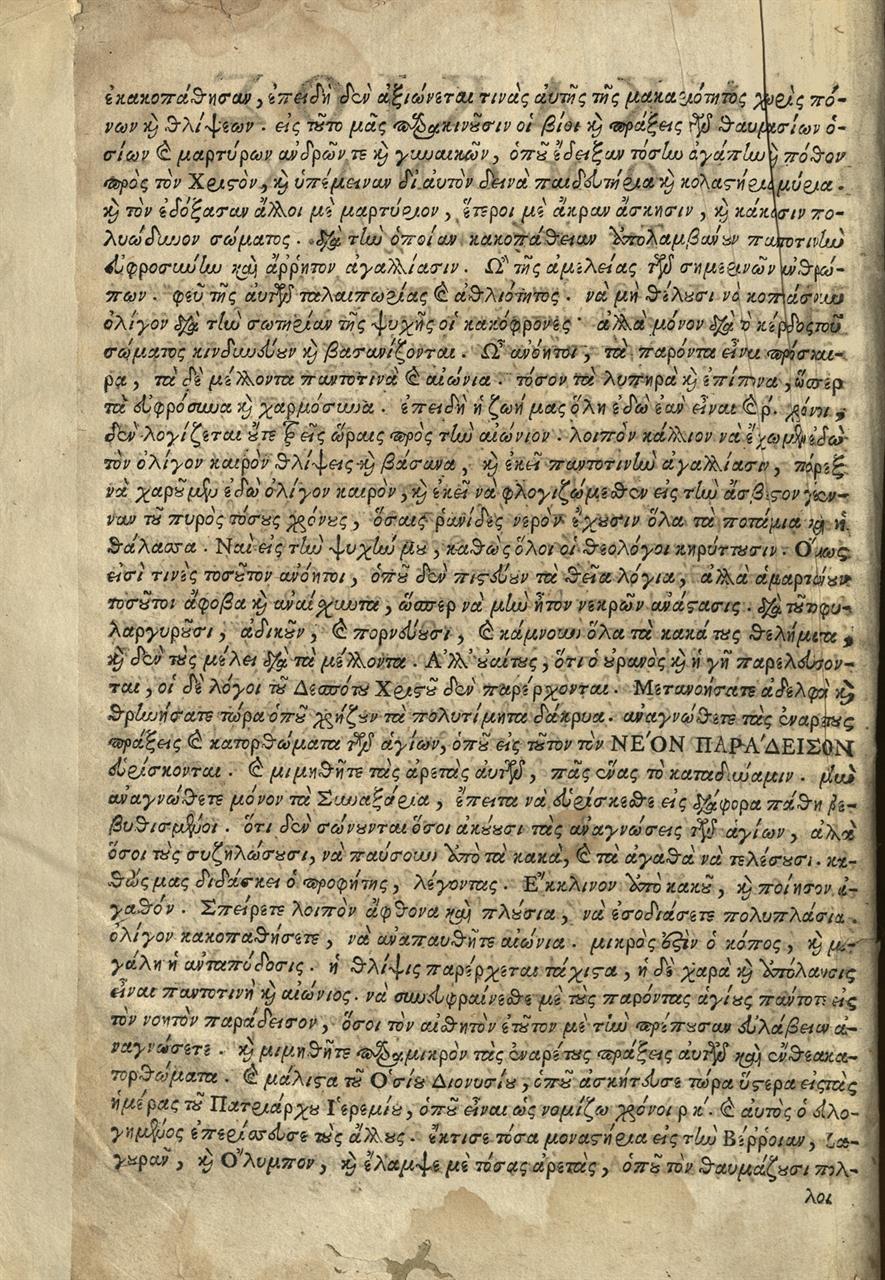 ἐκακοπάθησαν, ἐπειδὴ δὲν ἀξιώνεται τινὰς αὐτῆς τῆς μακαριότητος χωρὶς πό-
νων καὶ θλίψεων. εἰς τοῦτο μᾶς παρακινοῦσιν οἱ βίοι καὶ πράξεις τῶν θαυμασίων ὁ-
σίων καὶ μαρτύρων ἀνδρῶν τε καὶ γυναικῶν, ὁποῦ ἔδειξαν τόσην ἀγάπην καὶ πόθον
πρὸς τὸν Χριστὸν, καὶ ὑπέμειναν δι' αὐτὸν δεινὰ παιδευτήρια καὶ κολαστήρια μύρια.
καὶ τὸν ἐδόξασαν ἄλλοι μὲ μαρτύριον, ἕτεροι μὲ ἄκραν ἄσκησιν, καὶ κάκωσιν πο-
λυώδυνον σώματος. διὰ τὴν ὁποίαν κακοπάθειαν ἀπολαμβάνουν παντοτινὴν
εὐφροσύνην καὶ ἄῤῥητον ἀγαλλίασιν. Ὢ τῆς ἀμελείας τῶν σημερινῶν ἀνθρώ-
πων. φεῦ τῆς αὐτῶν ταλαιπωρίας καὶ ἀθλιότητος. νὰ μὴ θέλουσι νὰ κοπιάσουν
ὀλίγον διὰ τὴν σωτηρίαν τῆς ψυχῆς οἱ κακόφρονες· ἀλλὰ μόνον διὰ τὸ κέρδος τοῦ
σώματος κινδυνεύουν καὶ βασανίζονται. Ὢ ἀνόητοι, τὰ παρόντα εἶναι πρόσκαι-
ρα, τὰ δὲ μέλλοντα παντοτινὰ καὶ αἰώνια. τόσον τὰ λυπηρὰ καὶ ἐπίπονα, ὥσπερ
τὰ εὐφρόσυνα καὶ χαρμόσυνα. ἐπειδὴ ἡ ζωή μας ὅλη ἐδῶ ἐὰν εἶναι καὶ ρ΄. χρόνοι,
δὲν λογίζεται οὔτε τρεῖς ὥραις πρὸς τὴν αἰώνιον. λοιπὸν κάλλιον νὰ ἔχωμεν ἐδῶ
τὸν ὀλίγον καιρὸν θλίψεις καὶ βάσανα, καὶ ἐκεῖ παντοτινὴν ἀγαλλίασιν, πάρεξ
νὰ χαροῦμεν ἐδῶ ὀλίγον καιρὸν, καὶ ἐκεῖ νὰ φλογιζώμεθεν εἰς τὴν ἄσβεστον γέεν-
ναν τοῦ πυρὸς τόσους χρόνους, ὅσαις ῥανίδες νερὸν ἔχουσιν ὅλα τὰ ποτάμια καὶ ἡ
θάλασσα. Ναὶ εἰς τὴν ψυχήν μου, καθὼς ὅλοι οἱ θεολόγοι κηρύττουσιν. Ὅμως
εἰσί τινὲς τοσοῦτον ἀνόητοι, ὁποῦ δὲν πιστεύουν τὰ θεῖα λόγια, ἀλλὰ ἁμαρτάνουν
τοσοῦτοι ἄφοβα καὶ ἀναίσχυντα, ὥσπερ νὰ μὴν ἦτον νεκρῶν ἀνάστασις. διὰ τοῦτο φι-
λαργυροῦσι, ἀδικοῦν, καὶ πορνεύουσι, καὶ κάμνουσιν ὅλα τὰ κακά τους θελήματα,
καὶ δὲν τοὺς μέλει διὰ τὰ μέλλοντα. Ἀλλ' οὐαί τους, ὅτι ὁ οὐρανὸς καὶ ἡ γῆ παρελεύσον-
ται, οἱ δὲ λόγοι τοῦ Δεσπότου Χριστοῦ δὲν παρέρχονται. Μετανοήσατε ἀδελφοὶ καὶ
θρηνήσατε τώρα ὁποῦ χρήζουν τὰ πολυτίμητα δάκρυα. ἀναγνώθετε τὰς ἐναρέτους
πράξεις καὶ κατορθώματα τῶν ἁγίων, ὁποῦ εἰς τοῦτον τὸν ΝΕΌΝ ΠΑΡΆΔΕΙΣΟΝ
εὑρίσκονται. καὶ μιμηθῆτε τὰς ἀρετὰς αὐτῶν, πᾶς ἕνας τὸ κατὰ δύναμιν. μὴν
ἀναγνώθετε μόνον τὰ Συναξάρια, ἔπειτα νὰ εὑρίσκεσθε εἰς διάφορα πάθη βε-
βυθισμένοι. ὅτι δὲν σώνουνται ὅσοι ἀκούουσι τὰς ἀναγνώσεις τῶν ἁγίων, ἀλλὰ
ὅσοι τοὺς συζηλώσουσι, νὰ παύσουν ἀπὸ τὰ κακὰ, καὶ τὰ ἀγαθὰ νὰ τελέσουσι. κα-
θὼς μας διδάσκει ὁ προφήτης, λέγοντας. Ἔκκλινον ἀπὸ κακοῦ, καὶ ποίησον ἀ-
γαθόν. Σπείρετε λοιπὸν ἄφθονα καὶ πλούσια, νὰ ἐσοδιάσετε πολυπλάσια.
ὀλίγον κακοπαθήσετε, νὰ ἀναπαυθῆτε αἰώνια. μικρὸς ἐστὶν ὁ κόπος, καὶ με-
γάλη ἡ ἀνταπόδοσις. ἡ θλίψις παρέρχεται τάχιστα, ἡ δὲ χαρὰ καὶ ἀπόλαυσις
εἶναι παντοτινὴ καὶ αἰώνιος. νὰ συνευφραίνεσθε μὲ τοὺς παρόντας ἁγίους πάντοτε εἰς
τὸν νοητὸν παράδεισον, ὅσοι τὸν αἰσθητὸν ἐτοῦτον μὲ τὴν πρέπουσαν εὐλάβειαν ἀ-
ναγνώσετε. καὶ μιμηθῆτε παραμικρὸν τὰς ἐναρέτους πράξεις αὐτῶν καὶ ἔνθεα κα-
τορθώματα. καὶ μάλιστα τοῦ Ὁσίου Διονυσίου, ὁποῦ ἀσκήτευσε τώρα ὕστερα εἰς τὰς
ἡμέρας τοῦ Πατριάρχου Ἱερεμίου, ὁποῦ εἶναι ὡς νομίζω χρόνοι ρκ΄. καὶ αὐτὸς ὁ εὐλο-
γημένος ἐπερίσσευσε τοὺς ἄλλους. ἔκτισε τόσα μοναστήρια εἰς τὴν Βέῤῥοιαν, Ζα-
γορὰν, καὶ Ὄλυμπον, καὶ ἔλαμψε μὲ τόσας ἀρετὰς, ὁποῦ τὸν θαυμάζουσι πολ-
λοι